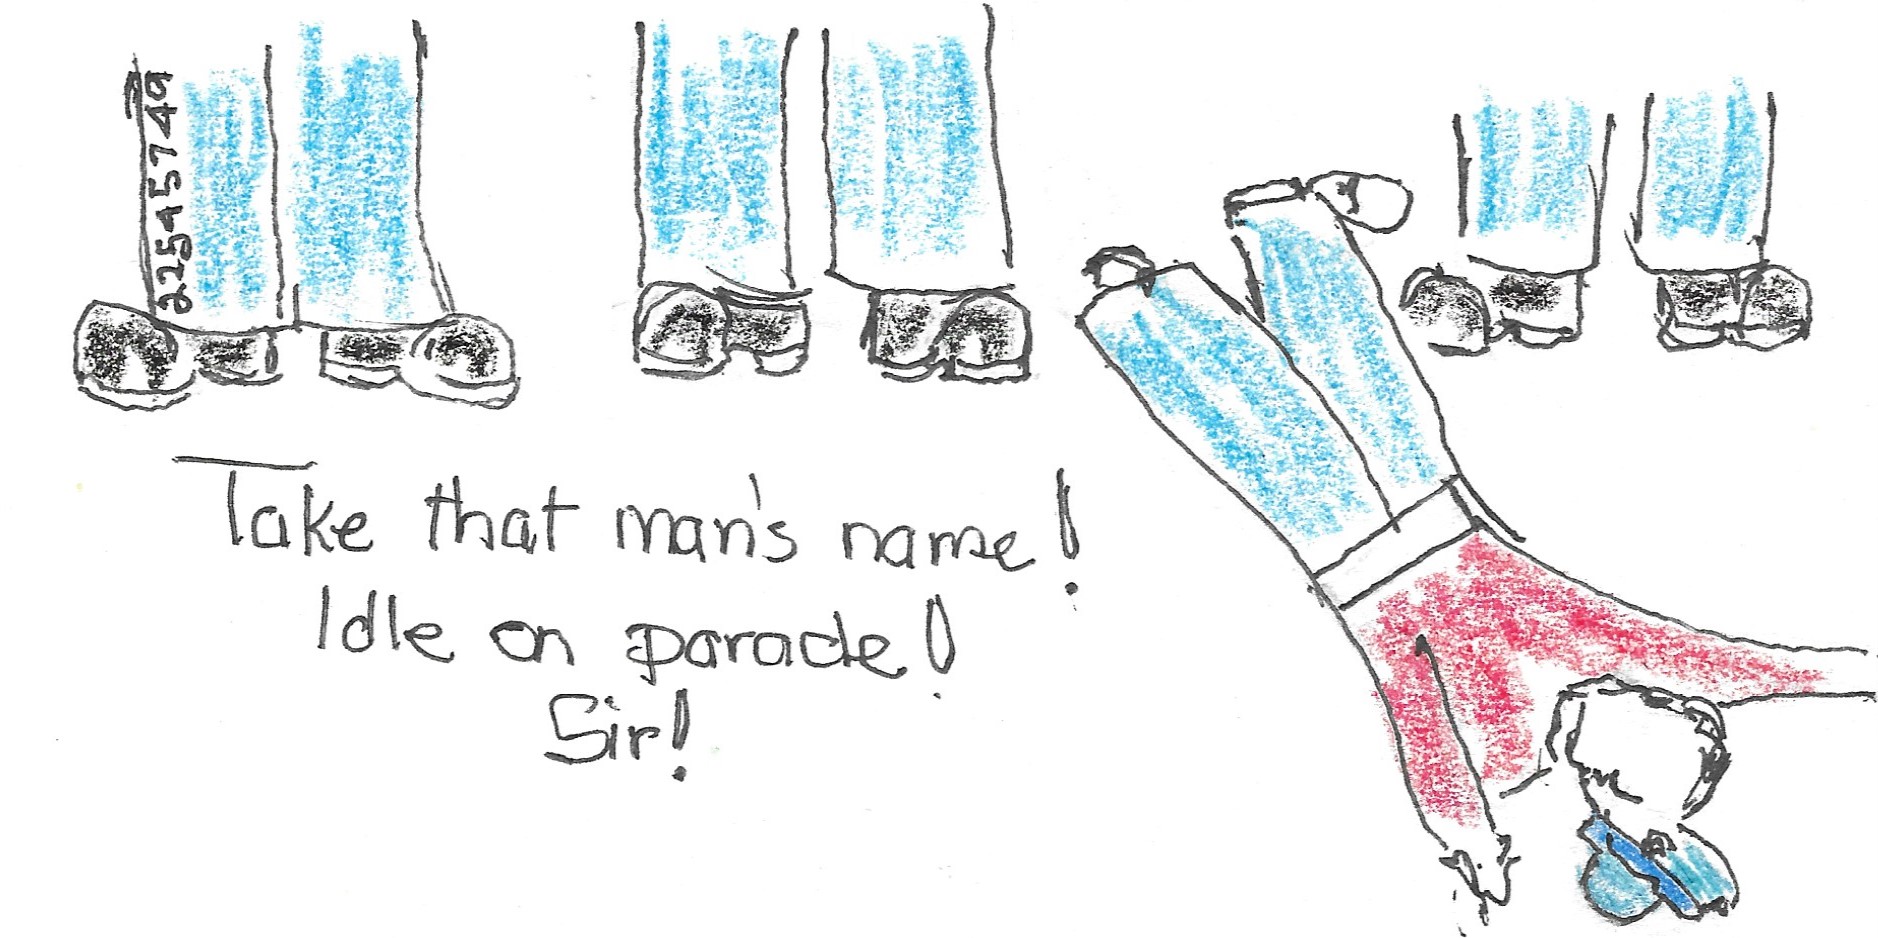 22545749
Take that man's name!
Idle on parade!
Sir!